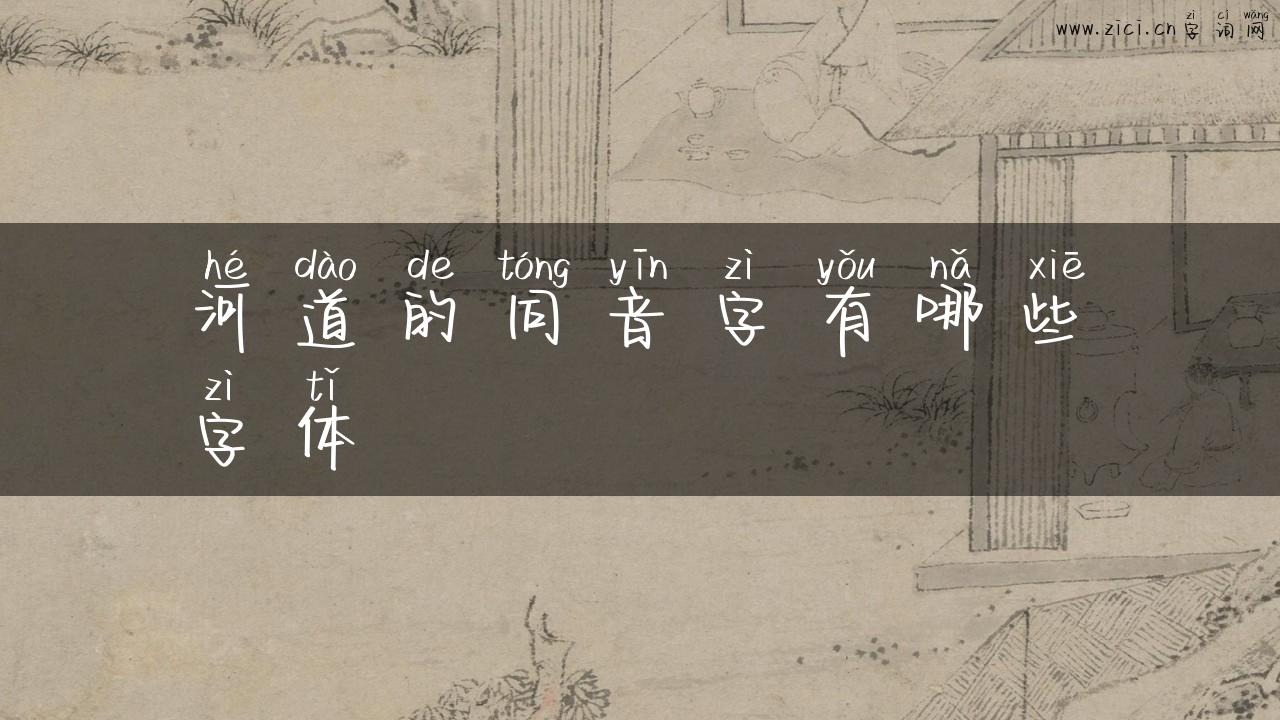 zì cí wǎng
www.zici.cn 字词网
hé dào de tóng yīn zì yǒu nǎ xiē
河道的同音字有哪些
zì tǐ
字体